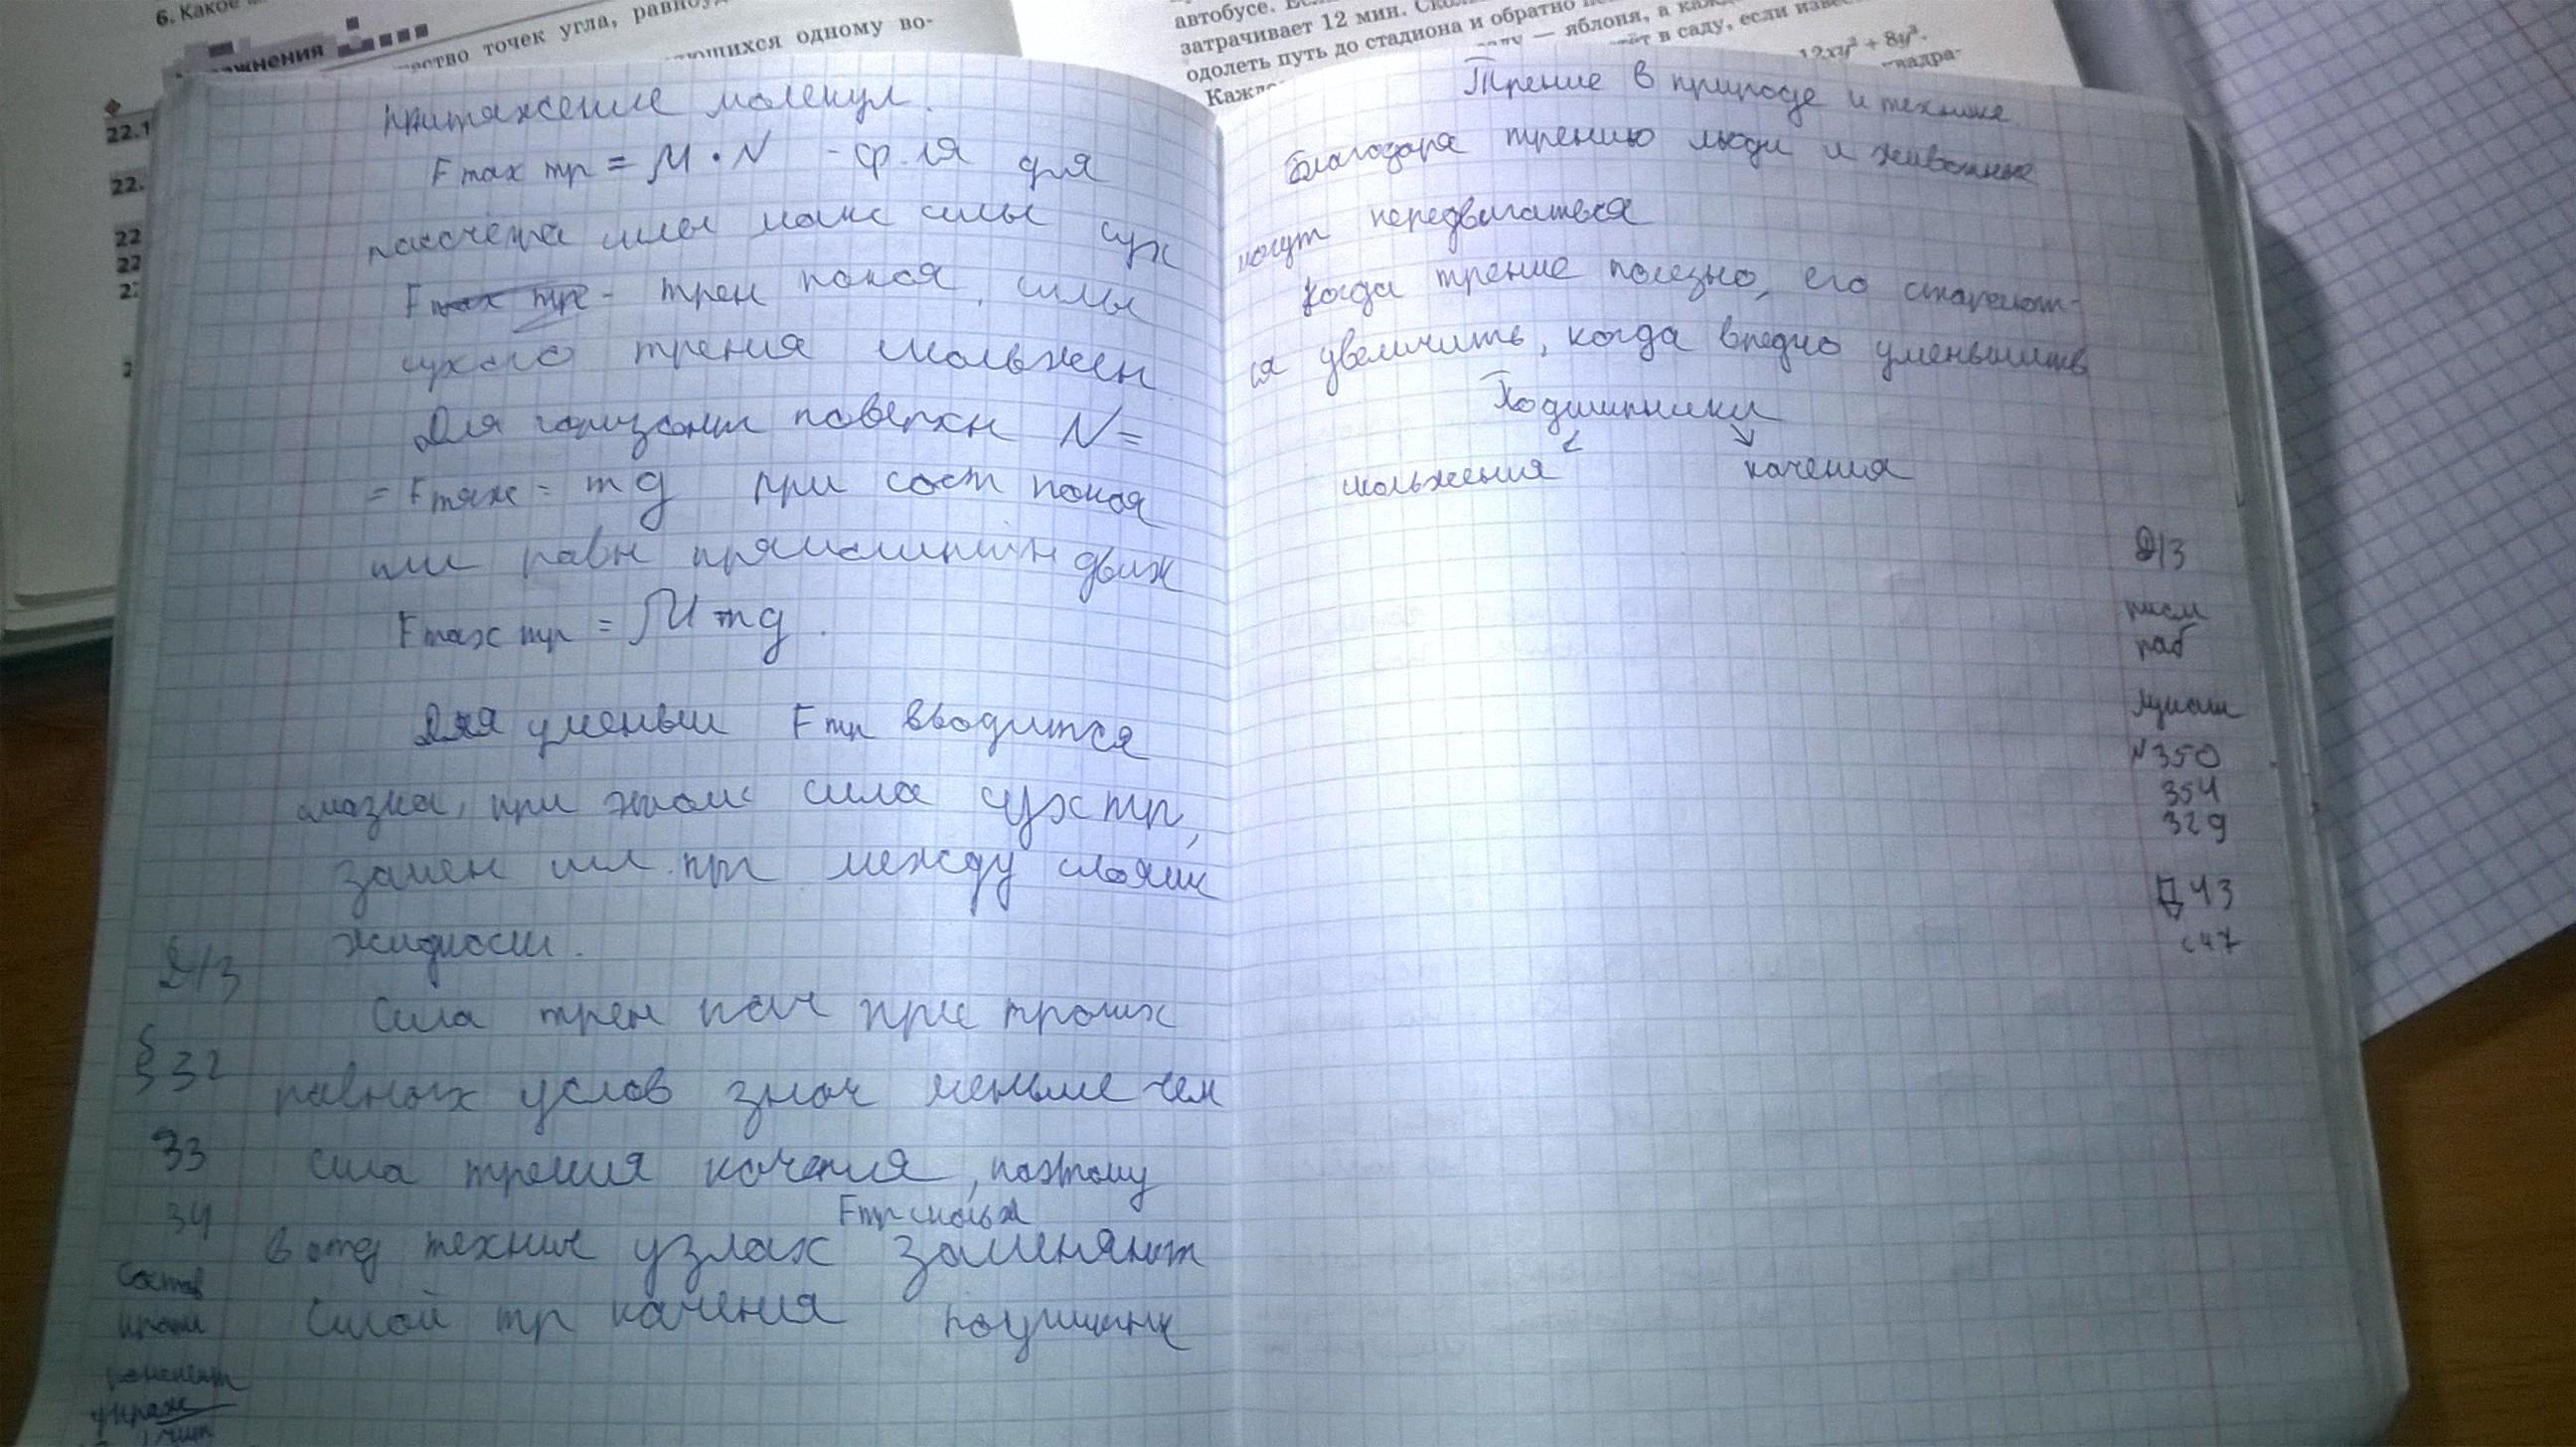 6. Какое
точек угла, равноу
одному во-
22.1
22.
22
22
автобусе.
затрачивает 12 мин.
одолеть путь до стадиона и обратно
— яблоня, а
в саду, если изве
12xy² + 8y³.
притяжение молекул.
Fmax тр = М • N - ф-ла для
рассчета силы макс силы сух
Fmax тр - трен покоя, силы
сухого трения скольжен
Для горизонт поверхн N=
= Fтяж = mg при сост покоя
или равн прямолинейн движ
Fmax тр = М mg.
Для уменьш Fтр вводится
смазка, при этом сила сух тр,
замен сил тр между слоями
жидкости.
Сила трен кач при проших
равных услов знач меньше чем
сила трения качения, поэтому
Fтр скольж
в отд технич узлах заменяют
силой тр качения
Д/з
§ 32
33
34
Состав
Трение в природе и технике
Благодаря трению люди и животные
могут передвигаться
Когда трение полезно, его старают-
ся увеличить, когда вредно уменьшить
Подшипники
скольжения качения
Д/з
письм
раб
Лукаш
№350
354
329
43
с 47